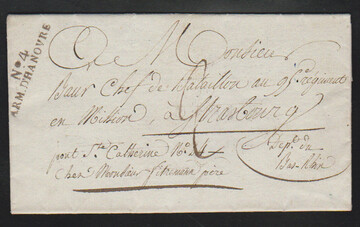 No. 4
ARM. D'HANOVRE
A Monsieur
Baur Chef de Bataillon au 9e régiment
en Mission, à Strasbourg
pont Ste Catherine No. 24
Chez Monsieur père
Dep. du
Bas-Rhin